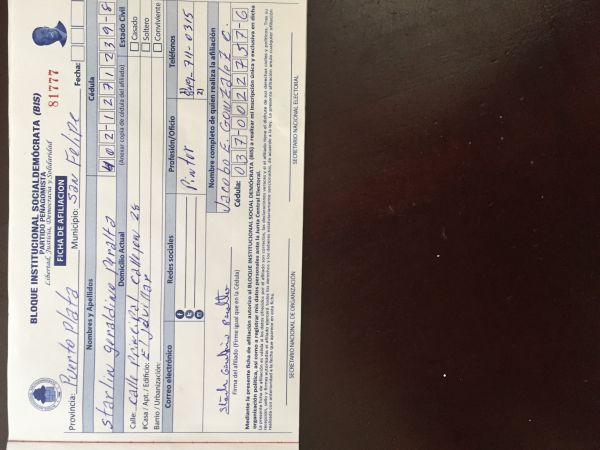 BLOQUE INSTITUCIONAL SOCIALDEMÓCRATA (BIS)
PARTIDO PEÑAGOMISTA
Libertad, Justicia, Democracia y Solidaridad
FICHA DE AFILIACION
81777
Provincia: Puerto Plata Municipio: San Felipe Fecha:
Nombres y Apellidos Cédula
starlin geraldino Peralta 402-1271239-8
Domicilio Actual (Anexar copia de cédula del afiliado) Estado Civil
Calle: calle Principal callejon 26 Casado
#Casa / Apt. / Edificio: Soltero
Barrio / Urbanización: Conviviente
Correo electrónico Redes sociales Profesión/Oficio Teléfonos
Pintor 1) 849-711-0315
2)
Nombre completo de quien realiza la afiliación
Jacobo E. Gonzalez O.
Firma del afiliado (Firme igual que en la Cédula) Cédula: 037-0022737-6
Mediante la presente ficha de afiliación autorizo al BLOQUE INSTITUCIONAL SOCIALDEMÓCRATA (BIS) a realizar mi inscripción única y exclusiva en dicha
organización política, así como a registrar mis datos personales ante la Junta Central Electoral.
SECRETARIO NACIONAL DE ORGANIZACIÓN SECRETARIO NACIONAL ELECTORAL